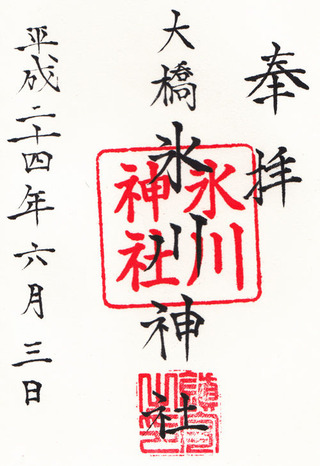 奉拝
大橋氷川神社
氷川
神社
平成二十四年六月三日